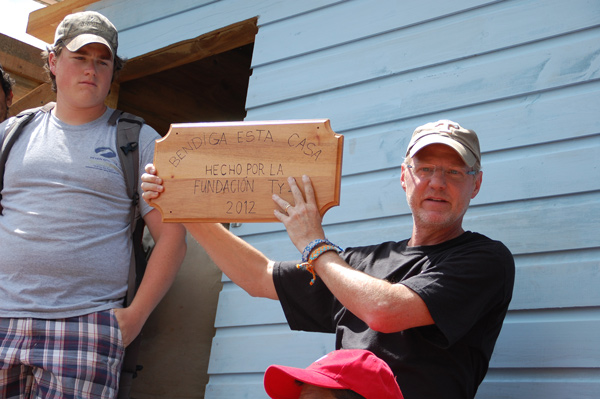 BENDIGA ESTA CASA
HECHO POR LA
FUNDACIÓN
2012